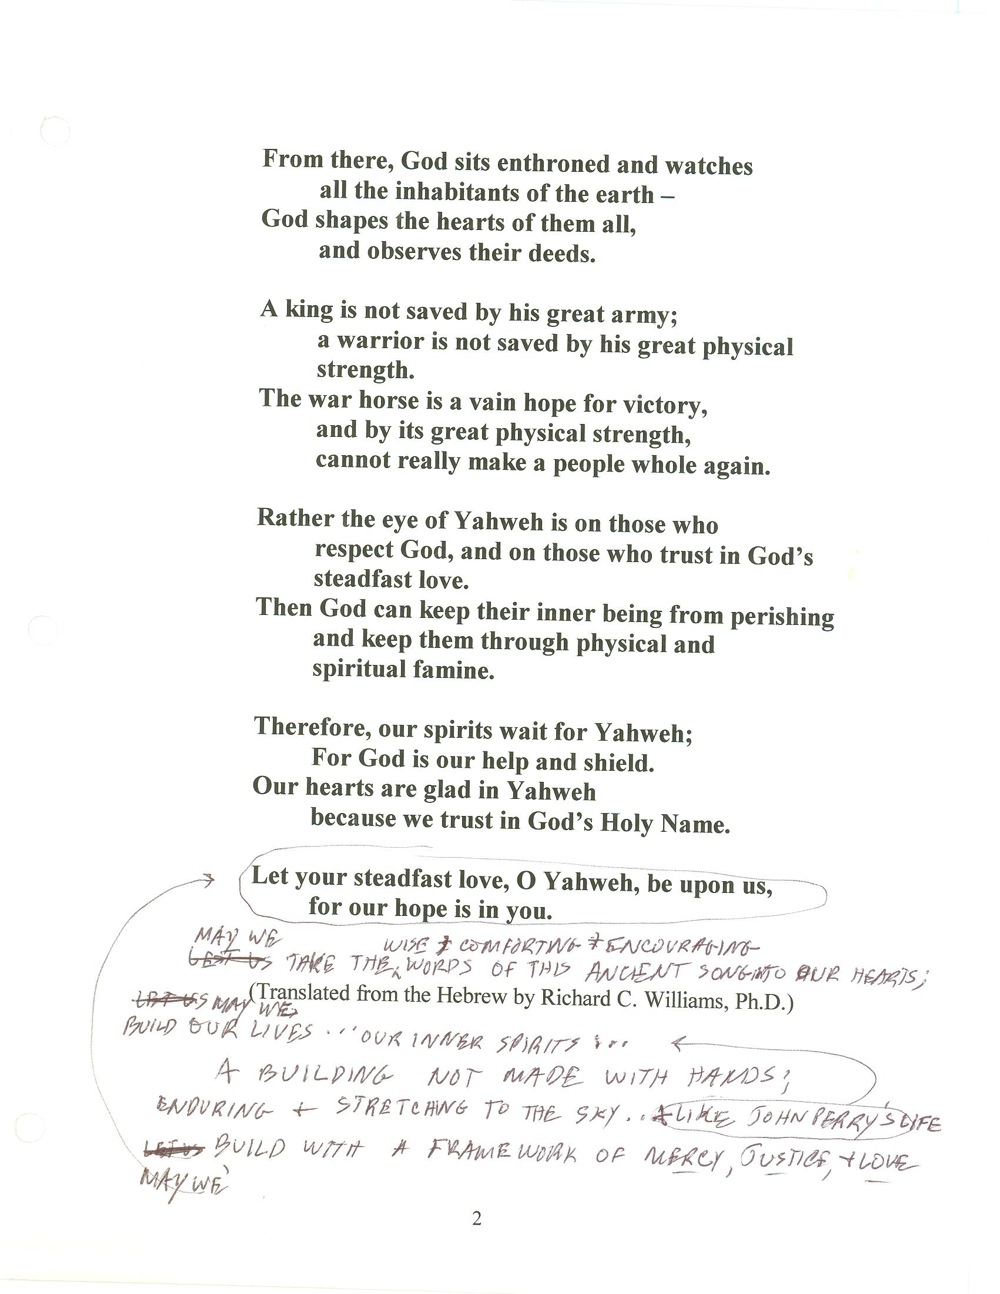 From there, God sits enthroned and watches
all the inhabitants of the earth –
God shapes the hearts of them all,
and observes their deeds.
A king is not saved by his great army;
a warrior is not saved by his great physical
strength.
The war horse is a vain hope for victory,
and by its great physical strength,
cannot really make a people whole again.
Rather the eye of Yahweh is on those who
respect God, and on those who trust in God's
steadfast love.
Then God can keep their inner being from perishing
and keep them through physical and
spiritual famine.
Therefore, our spirits wait for Yahweh;
For God is our help and shield.
Our hearts are glad in Yahweh
because we trust in God's Holy Name.
Let your steadfast love, O Yahweh, be upon us,
for our hope is in you.
MAY WE WISE + COMFORTING + ENCOURAGING
LET US TAKE THE WORDS OF THIS ANCIENT SONG INTO OUR HEARTS;
(Translated from the Hebrew by Richard C. Williams, Ph.D.)
LET US MAY WE
BUILD OUR LIVES ... OUR INNER SPIRITS ...
A BUILDING NOT MADE WITH HANDS;
ENDURING + STRETCHING TO THE SKY.. LIKE JOHN PERRY'S LIFE
LET US BUILD WITH A FRAMEWORK OF MERCY, JUSTICE, + LOVE
MAY WE
2